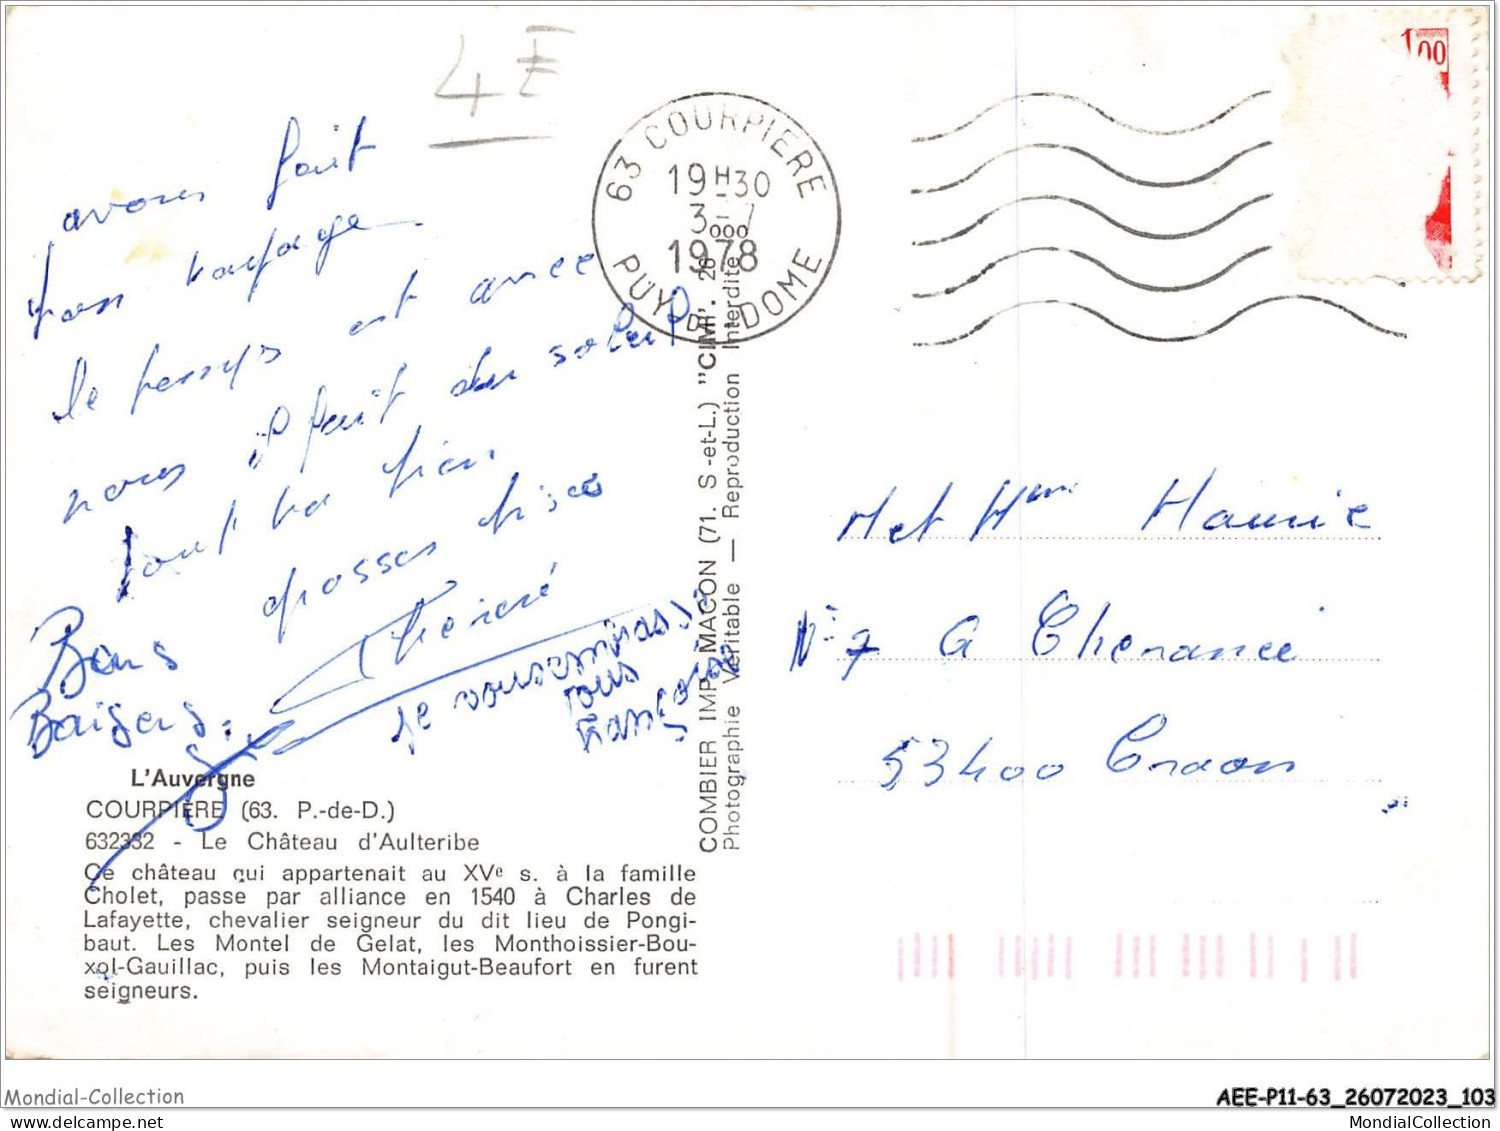 4 F
avons fait
bon voyage
le temps est avec
nous il fait du soleil
tout va bien
grosses bises
Bons
Baisers
je vous embrasse
tous
Françoise
L'Auvergne
COURPIÈRE (63. P.-de-D.)
632332 - Le Château d'Aulteribe
Ce château qui appartenait au XVe s. à la famille
Cholet, passe par alliance en 1540 à Charles de
Lafayette, chevalier seigneur du dit lieu de Pongi-
baut. Les Montel de Gelat, les Monthoissier-Bou-
xol-Gauillac, puis les Montaigut-Beaufort en furent
seigneurs.
COMBIER IMP. MACON (71. S-et-L.) "CIM". 26
Photographie Véritable — Reproduction Interdite
63 COURPIERE
19H30
3-7
1978
PUY-D-DOME
1,00
M et Mme
N° 7
53400 Craon
Mondial-Collection
AEE-P11-63_26072023_103
MondialCollection